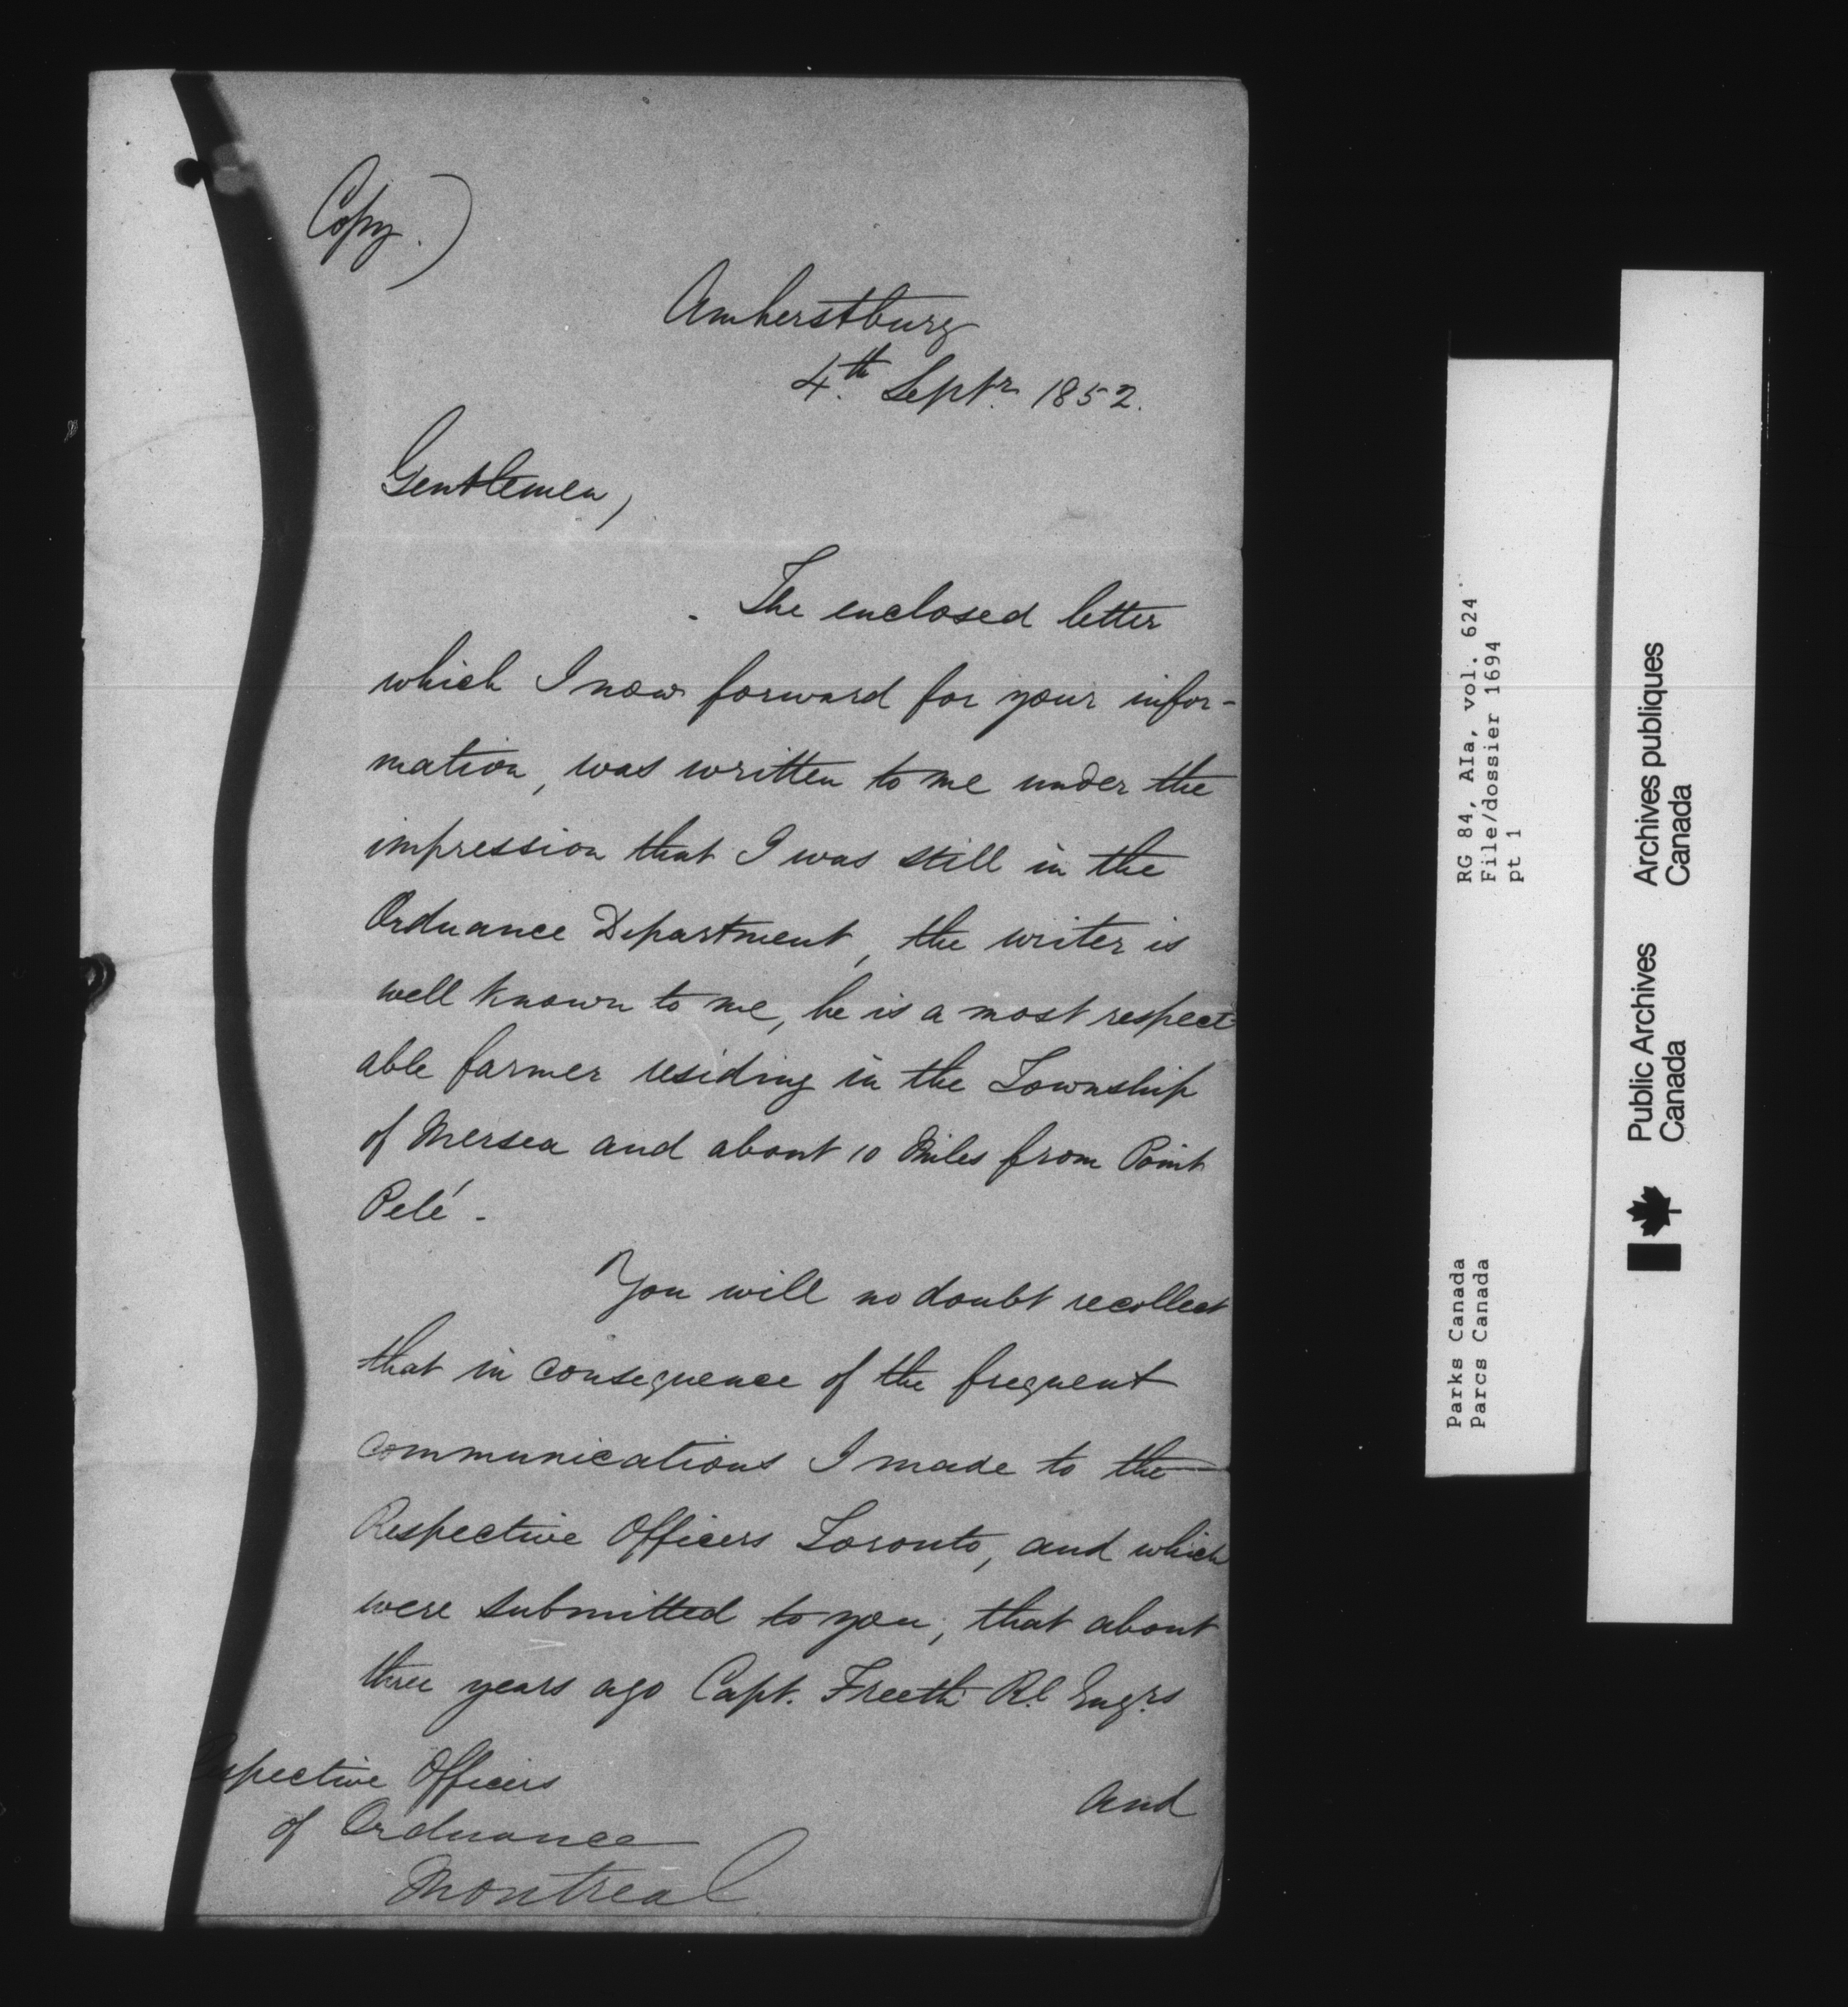 Copy.)
Amherstburg
4th Septr 1852.
Gentlemen,
The enclosed letter
which I now forward for your infor-
mation, was written to me under the
impression that I was still in the
Ordnance Department, the writer is
well known to me, he is a most respect
able farmer residing in the Township
of Mersea and about 10 Miles from Point
Pelé -
You will no doubt recollect
that in consequence of the frequent
communications I made to the
Respective Officers Toronto, and which
were submitted to you, that about
three years ago Capt. Freeth Rl. Engrs
and
spective Officers
of Ordnance
Montreal
Parks Canada
Parcs Canada
RG 84, AIa, vol. 624
File/dossier 1694
pt 1
Public Archives
Canada
Archives publiques
Canada